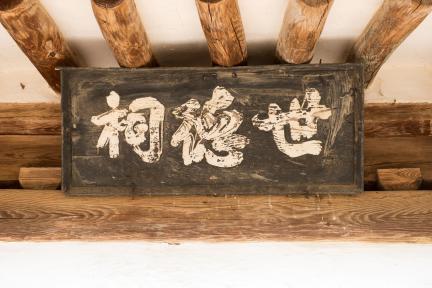 世德祠